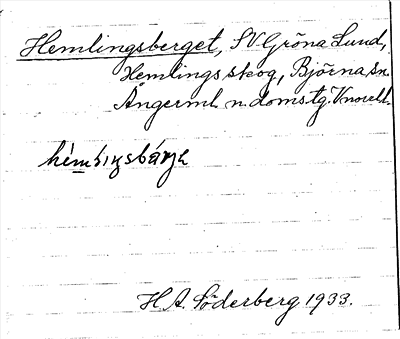 Hemlingsberget, SV. Gröna Lund,
Hemlings skog, Björna sn.
Ångerml. n. doms.tg. Knorell.
H. A. Söderberg 1933.